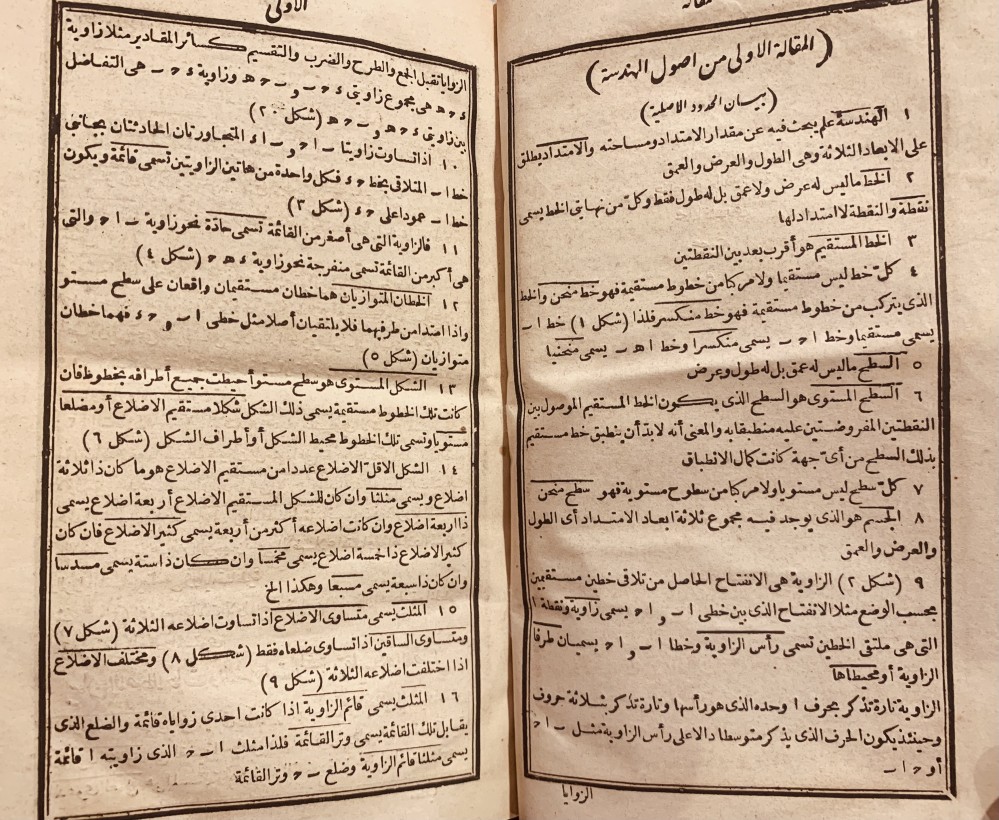 مقالة
(المقالة الاولى من اصول الهندسة)
(بيان الحدود الاصلية)
١ الهندسة علم يبحث فيه عن مقدار الامتداد ومساحته والامتداد يطلق
على الابعاد الثلاثة وهى الطول والعرض والعمق
٢ الخط ماليس له عرض ولا عمق بل له طول فقط وكلّ من نهايتى الخط يسمى
نقطة والنقطة لا امتداد لها
٣ الخط المستقيم هو أقرب بعد بين النقطتين
٤ كلّ خط ليس مستقيما ولا مركبا من خطوط مستقيمة فهو خط منحن والخط
الذى يتركب من خطوط مستقيمة فهو خط منكسر فلذا (شكل ١) خط ا ـ
يسمى مستقيما وخط ا ح ـ يسمى منكسرا وخط ا هـ ـ يسمى منحنيا
٥ السطح ماليس له عمق بل له طول وعرض
٦ السطح المستوى هو السطح الذى يكون الخط المستقيم الموصول بين
النقطتين المفروضتين عليه منطبقا به والمعنى أنه لابدّ أن ينطبق خط مستقيم
بذلك السطح من أىّ جهة كانت كمال الانطباق
٧ كلّ سطح ليس مستويا ولا مركبا من سطوح مستوية فهو سطح منحن
٨ الجسم هو الذى يوجد فيه مجموع ثلاثة ابعاد الامتداد أى الطول
والعرض والعمق
٩ (شكل ٢) الزاوية هى الانفتاح الحاصل من تلاقى خطين مستقيمين
بحسب الوضع مثلا الانفتاح الذى بين خطى ا ـ و ا ح يسمى زاوية ونقطة ا
التى هى ملتقى الخطين تسمى رأس الزاوية وخطا ا ـ و ا ح يسميان طرفا
الزاوية أو محيطاها
الزاوية تارة تذكر بحرف ا وحده الذى هو رأسها وتارة تذكر بثلاثة حروف
وحينئذ يكون الحرف الذى يذكر متوسطا دالا على رأس الزاوية مثل ـ ا ح
أو ح ا ـ
الزوايا
الاولى
الزوايا تقبل الجمع والطرح والضرب والتقسيم كسائر المقادير مثلا زاوية
ء ح هـ هى مجموع زاويتى ء ح ـ و ـ ح هـ وزاوية ء ح ـ هى التفاضل
بين زاويتى ء ح هـ و ـ ح هـ (شكل ٢٠)
١٠ اذا تساوت زاويتا ـ ا ح و ـ ا ء المتجاورتان الحادثتان بجانبى
خط ا ـ المتلاقى بخط ح ء فكل واحدة من هاتين الزاويتين تسمى قائمة ويكون
خط ا ـ عمودا على ح ء (شكل ٣)
١١ فالزاوية التى هى أصغر من القائمة تسمى حادّة نحو زاوية ـ ا ح والتى
هى أكبر من القائمة تسمى منفرجة نحو زاوية ء هـ ح (شكل ٤)
١٢ الخطان المتوازيان هما خطان مستقيمان واقعان على سطح مستو
واذا امتدا من طرفيهما فلا يلتقيان أصلا مثل خطى ا ـ و ح ء فهما خطان
متوازيان (شكل ٥)
١٣ الشكل المستوى هو سطح مستو أحيطت جميع أطرافه بخطوط فان
كانت تلك الخطوط مستقيمة يسمى ذلك الشكل شكلا مستقيم الاضلاع أو مضلعا
مستويا وتسمى تلك الخطوط محيط الشكل أو أطراف الشكل (شكل ٦)
١٤ الشكل الاقلّ الاضلاع عددا من مستقيم الاضلاع هو ما كان ذا ثلاثة
اضلاع ويسمى مثلثا وان كان للشكل المستقيم الاضلاع أربعة اضلاع يسمى
ذا اربعة اضلاع وان كانت اضلاعه أكثر من أربعة يسمى كثير الاضلاع فان كان
كثير الاضلاع ذا خمسة اضلاع يسمى مخمسا وان كان ذا ستة يسمى مسدسا
وان كان ذا سبعة يسمى مسبعا وهكذا الخ
١٥ المثلث يسمى متساوى الاضلاع اذا تساوت اضلاعه الثلاثة (شكل ٧)
ومتساوى الساقين اذا تساوى ضلعاه فقط (شكل ٨) ومختلف الاضلاع
اذا اختلفت اضلاعه الثلاثة (شكل ٩)
١٦ المثلث يسمى قائم الزاوية اذا كانت احدى زواياه قائمة والضلع الذى
يقابل تلك القائمة يسمى وتر القائمة فلذا مثلث ا ـ ح الذى زاويته ا قائمة
يسمى مثلثا قائم الزاوية وضلع ـ ح وتر القائمة